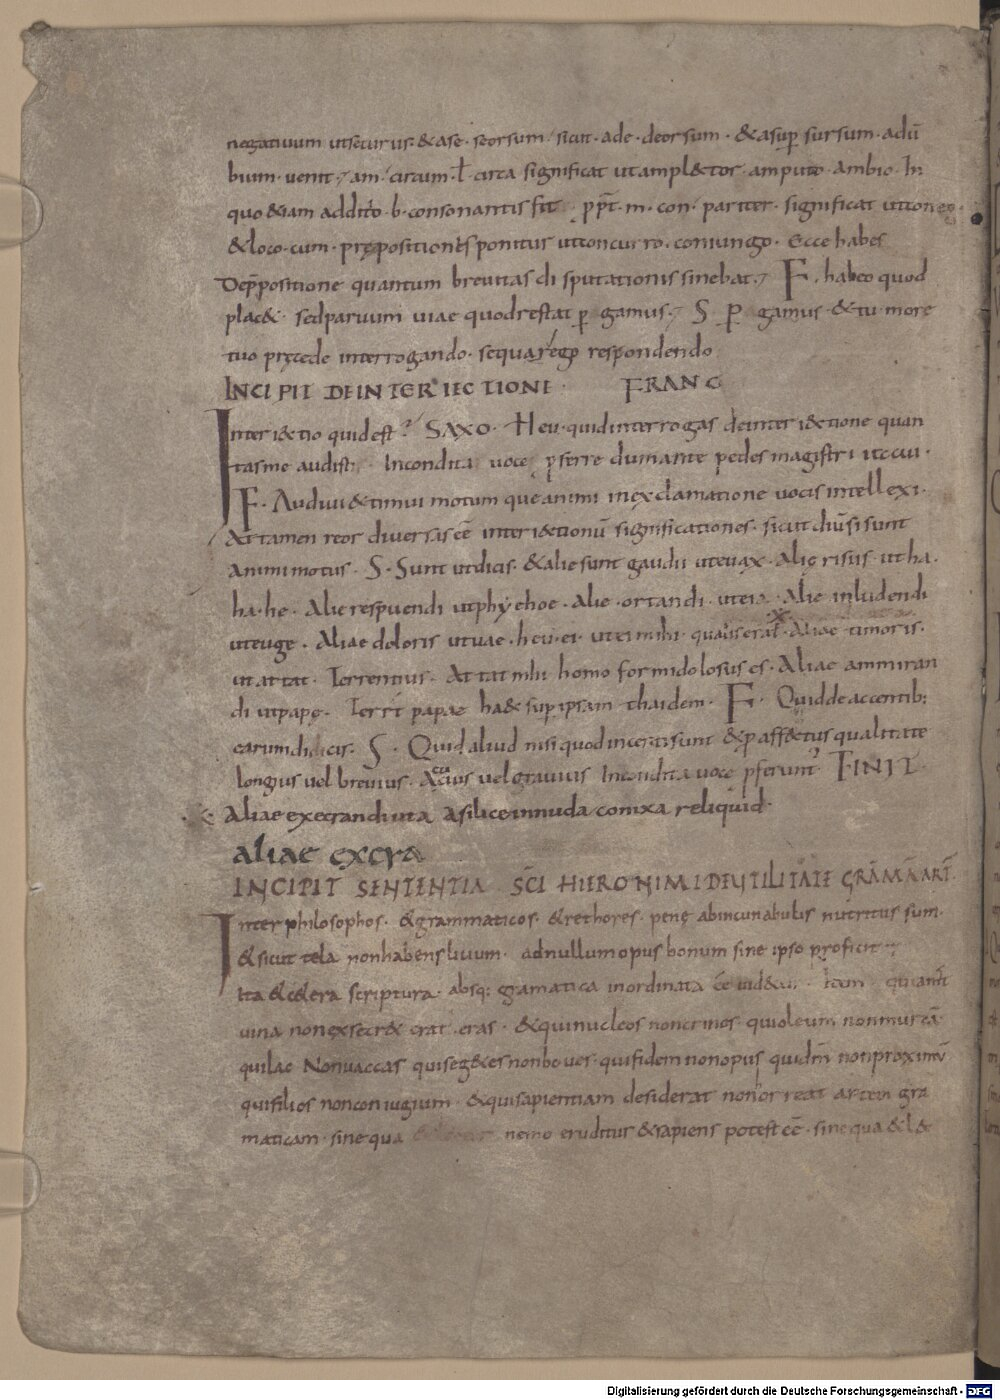 negatiuum ut securus· &ase· seorsum· sicut· ade· deorsum· &asuꝑ sursum· adū
bium· uenit· am· circum· ł· circa significat ut ampl&tor· amputo· ambio· In
quo &iam addito· b· consonantis fit p̄p̄t· m· con· pariter· significat utcon
&loco· cum· prępositionẽs ponitur utconcurro· coniungo· Ecce habes
Dep̄positione quantum breuitas disputationis sinebat· F· habeo quod
plac&· sed paruum uiae quod restat ꝑ gamus· S ꝑ gamus· &tu more
tuo pręcede interrogando· sequar egp respondendo
INCIPIT DE INTERIECTIONE· FRANC
Interi&tio quid est? SAXO· Heu· quid interrogas de interi&tione quan
tas me audisti· Incondita uoce ꝓferre clumante pedes magistri
F· Audiui &timui motum que animi inexclamatione uocis intellexi·
At tamen reor diuersas cē interi&tionū significationes· sicut diūsi sunt
animi motus· S· Sunt ut dicis· &alie sunt gaudii ut euax· Alię risus· ut ha·
ha· he· Alie respuendi ut phy ehoe· Alie· ortandi· ut eia· Alie inludendi
ut euge· Aliae doloris ut uae· heu· ei· ut ei mihi· qualis erat· Aliae timoris·
ut attat· Terrentius· Attat mihi homo formidolosus es· Aliae ammiran
di ut papę· Terr̄ papae ha& suꝑ ipsam thaidem· F· Quid de accentib;
earum didicis· S· Quid aliud nisi quod incerti sunt &ꝑ aff&tus qualitate
longius uel breuius· Acutius uel grauius Incondita uoce ꝓferunt̉ FINIT·
Aliae execrandi uta asilice innuda conixa reliquid·
aliae excra
INCIPIT SENTENTIA SC̄I HIERONIMI DE UTILITATE GRĀMĀ ART̄·
Inter philosophos· &grammaticos· &rethores· penę abincunabulis nutritus sum·
&sicut tela non habens liuum· ad nullum opus bonum sine ipso proficit
Ita &c&era scriptura· absq; gramatica inordinata cē uid&ur· Nam
uina non exsecr& qui erat eras· &qui nucleos non crines· qui oleum non murcā·
qui lac Non uaccas qui seg&es non boues· qui fidem non opus quidm̄ non proximū
qui filios non coniugium· &qui sapientiam desiderat non orreat artem gra
maticam· sine qua nemo eruditur &sapiens potest cē· sine qua &l&